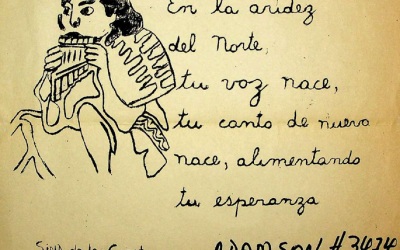 En la aridez
del Norte,
tu voz nace,
tu canto de nuevo
nace, alimentando
tu esperanza
ADAMSON #3414